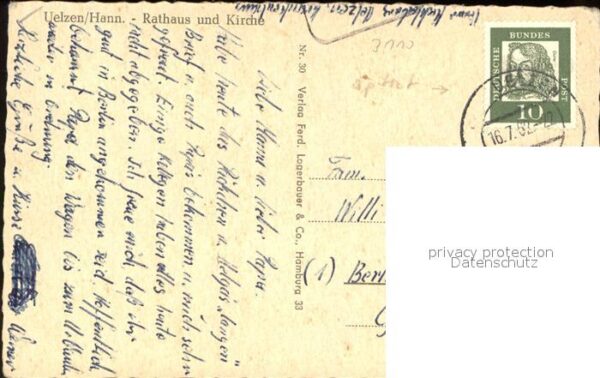 Uelzen/Hann. Rathaus und Kirche
Liebe Mama u. lieber Papa.
Habe heute des
Brief u. auch Papis bekommen u. mich sehr
gefreut. Einige haben alles heute
nicht abgegeben. Ich freue mich, daß ihr
gut in Berlin angekommen seid. Hoffentlich
bekommt Papa den Wagen bis zum Urlaub
wieder in Ordnung.
Herzliche Grüße u. Küsse
Werner
Nr. 30 Verlag Ferd. Lagerbauer & Co., Hamburg 33
3110
DEUTSCHE
BUNDES
POST
10
UELZEN
16.7.62
Fam.
Willi
(1) Berl
privacy protection
Datenschutz